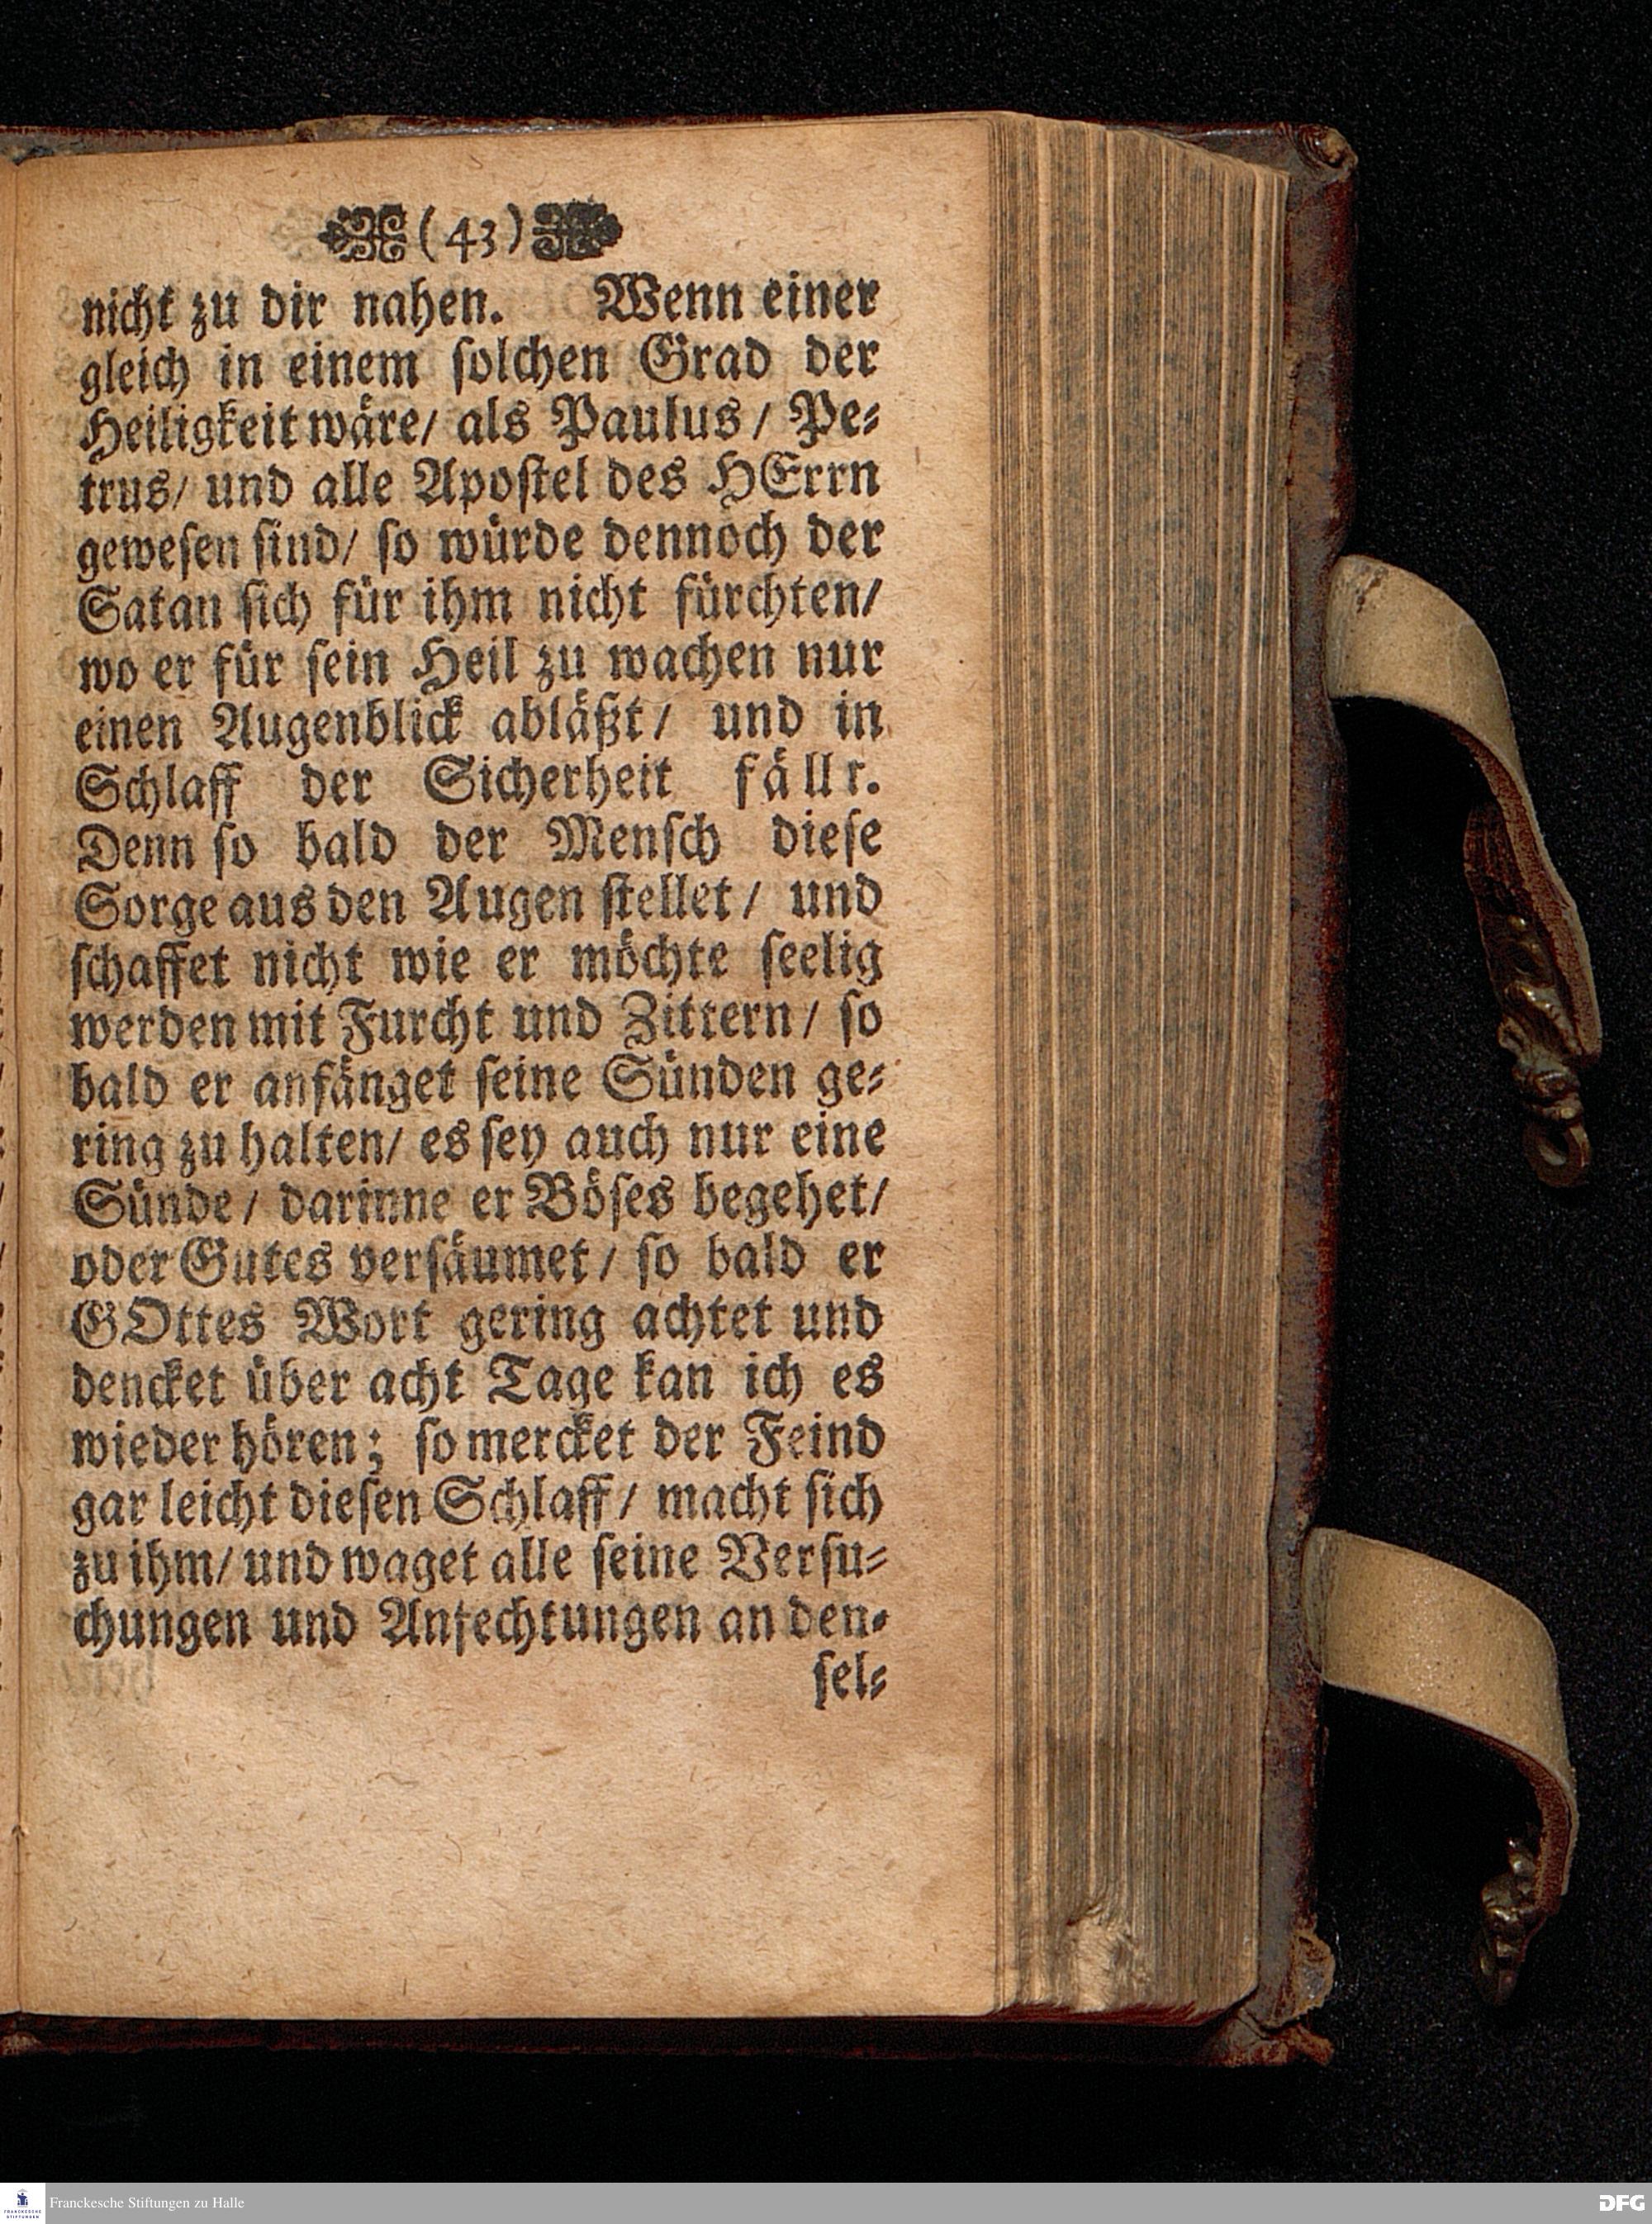 (43)
nicht zu dir nahen. Wenn einer
gleich in einem ſolchen Grad der
Heiligkeit wäre/ als Paulus/ Pe⸗
trus/ und alle Apoſtel des HErrn
geweſen ſind/ ſo würde dennoch der
Satan ſich für ihm nicht fürchten/
wo er für ſein Heil zu wachen nur
einen Augenblick abläßt/ und in
Schlaff der Sicherheit fällt.
Denn ſo bald der Menſch dieſe
Sorge aus den Augen ſtellet/ und
ſchaffet nicht wie er möchte ſeelig
werden mit Furcht und Zittern/ ſo
bald er anfänget ſeine Sünden ge⸗
ring zu halten/ es ſey auch nur eine
Sünde/ darinne er Böſes begehet/
oder Gutes verſäumet/ ſo bald er
GOttes Wort gering achtet und
dencket über acht Tage kan ich es
wieder hören; ſo mercket der Feind
gar leicht dieſen Schlaff/ macht ſich
zu ihm/ und waget alle ſeine Verſu⸗
chungen und Anfechtungen an den⸗
ſel⸗
FRANCKESCHE STIFTUNGEN
Franckesche Stiftungen zu Halle
DFG